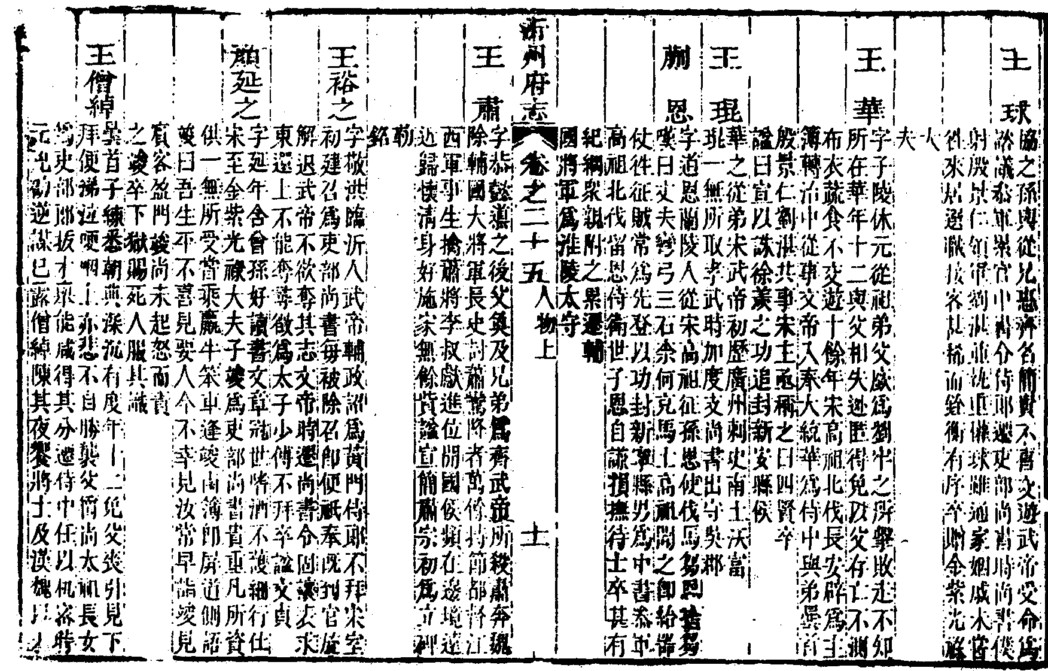 王球
協之孫與從兄惠齊名簡貴不喜文遊武帝受命爲
諮議參軍累官中書令侍郎遷吏部尚書時尚書僕
射殷景仁領軍劉湛並執重權球雖通家姻戚未嘗
徃來居選職接客甚稀而銓衡有序卒贈金紫光祿
大
夫
王華
字子陵休元從祖弟父廞爲劉牢之所擊敗走不知
所在華年十二與父相失逃匿得免以父存亡不測
布衣蔬食不交遊十餘年宋高祖北伐長安辟爲主
簿轉治中從事文帝入奉大統華爲侍中與弟曇首
殷景仁劉湛共事宋主亟稱之曰四賢卒
諡曰宣以誅徐羨之功追封新安縣侯
王琨
華之從弟宋武帝初歷廣州刺史南土沃富
琨一無所取孝武時加度支尚書出守吳郡
蒯恩
字道恩蘭陵人從宋高祖征孫恩使伐馬芻恩捨芻
嘆曰丈夫彎弓三石奈何充馬士高祖聞之卽給器
仗徃征賊常爲先登以功封新寧縣男爲中書參軍
高祖北伐留恩侍衛世子恩自謙損撫待士卒甚有
紀綱衆親附之累遷輔
國將軍爲淮陵太守
沂州府志
卷之二十五
人物上
十一
王肅
字恭懿導之後父奐及兄弟爲齊武帝所殺肅奔魏
除輔國大將軍長史討蕭鸞降者萬僃持節都督江
西軍事生擒蕭將李叔獻進位開國侯頻在邊境遠
近歸懷清身好施家無餘貲諡宣簡肅宗初爲立碑
勒
銘
王裕之
字敬洪臨沂人武帝輔政詔爲黃門侍郎不拜宋室
初建召爲吏部尚書每被除召卽便祇奉旣到官旋
解退武帝不欲奪其志文帝時遷尚書令固讓表求
東還上不能奪尋徵爲太子少傅不拜卒諡文貞
顔延之
字延年含曾孫好讀書文章冠世嗜酒不護細行仕
宋至金紫光祿大夫子竣爲吏部尚書貴重凡所資
供一無所受當乘羸牛笨車逢竣鹵簿卽屏道側語
竣曰吾生平不喜見要人今不幸見汝常早詣竣見
賓客盈門竣尚未起怒而責
之竣卒下獄賜死人服其識
王僧綽
曇首子練悉朝典深沉有度年十三免父喪引見下
拜便涕泣哽咽上亦悲不自勝襲父爵尚太祖長女
爲吏部郎拔才舉能咸得其分遷侍中任以机密時
元兇劭逆謀已露僧綽陳其夜饗將士及漢魏